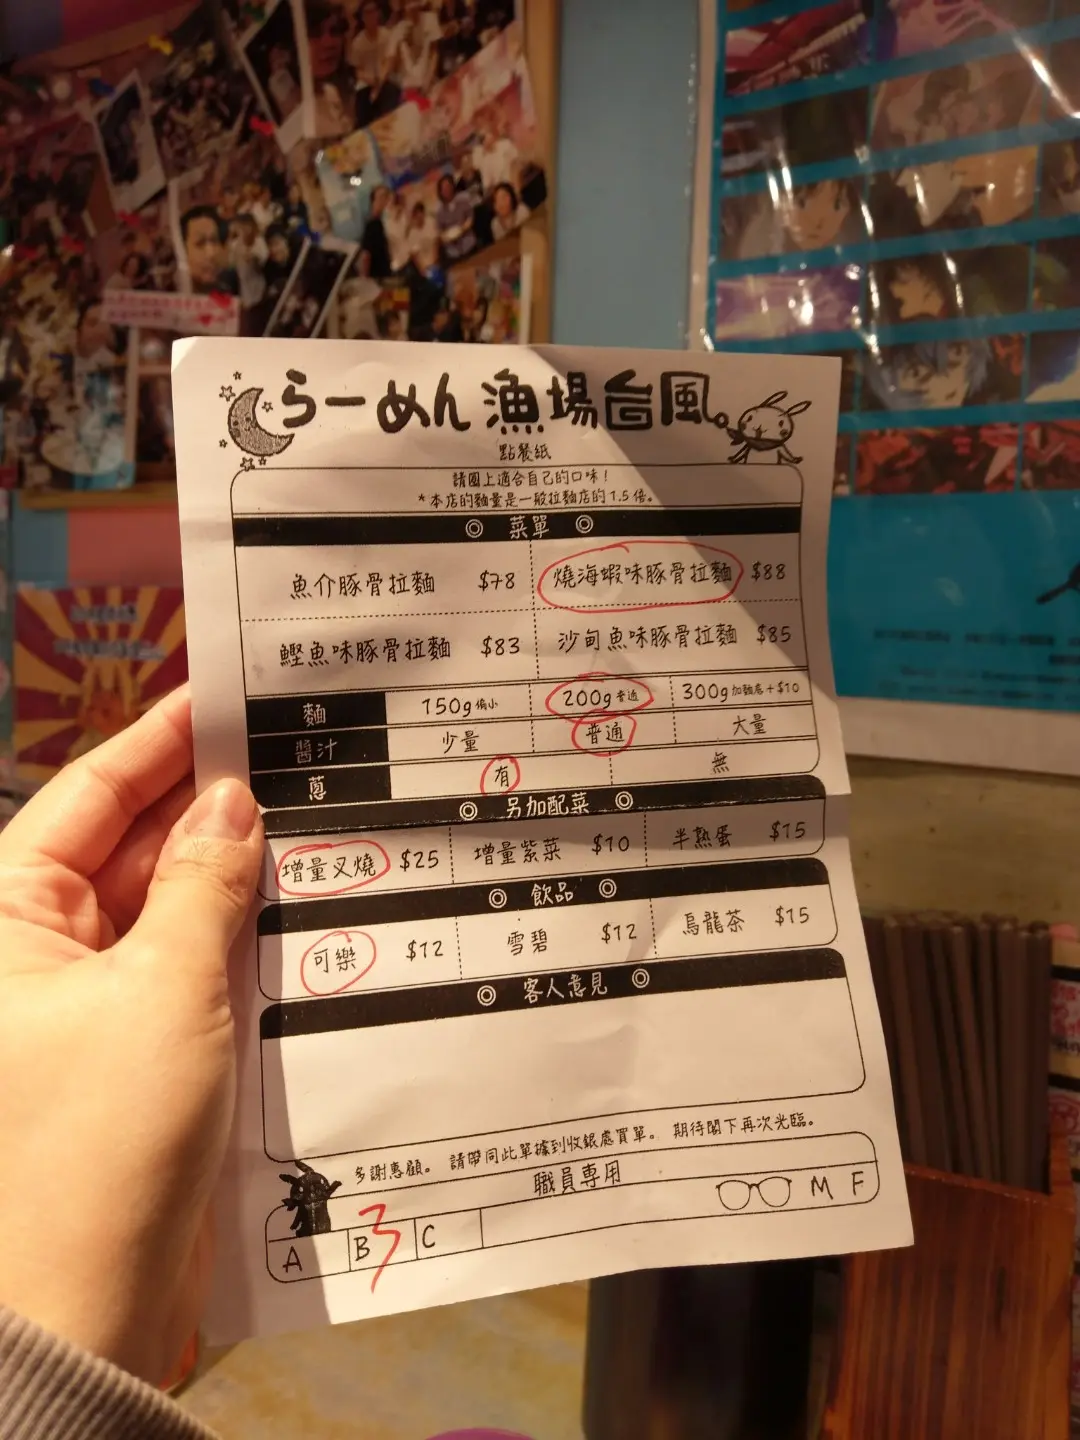 らーめん 漁場台風
點餐紙
請圈上適合自己的口味！
*本店的麵量是一般拉麵店的1.5倍。
◎ 菜單 ◎
魚介豚骨拉麵 $78 燒海蝦味豚骨拉麵 $88
鰹魚味豚骨拉麵 $83 沙甸魚味豚骨拉麵 $85
麵 150g 偏小 200g 普通 300g 加麵底+$10
醬汁 少量 普通 大量
蔥 有 無
◎ 另加配菜 ◎
增量叉燒 $25 增量紫菜 $10 半熟蛋 $15
◎ 飲品 ◎
可樂 $12 雪碧 $12 烏龍茶 $15
◎ 客人意見 ◎
多謝惠顧。 請帶同此單據到收銀處買單。 期待閣下再次光臨。
職員專用
A B 3 C M F